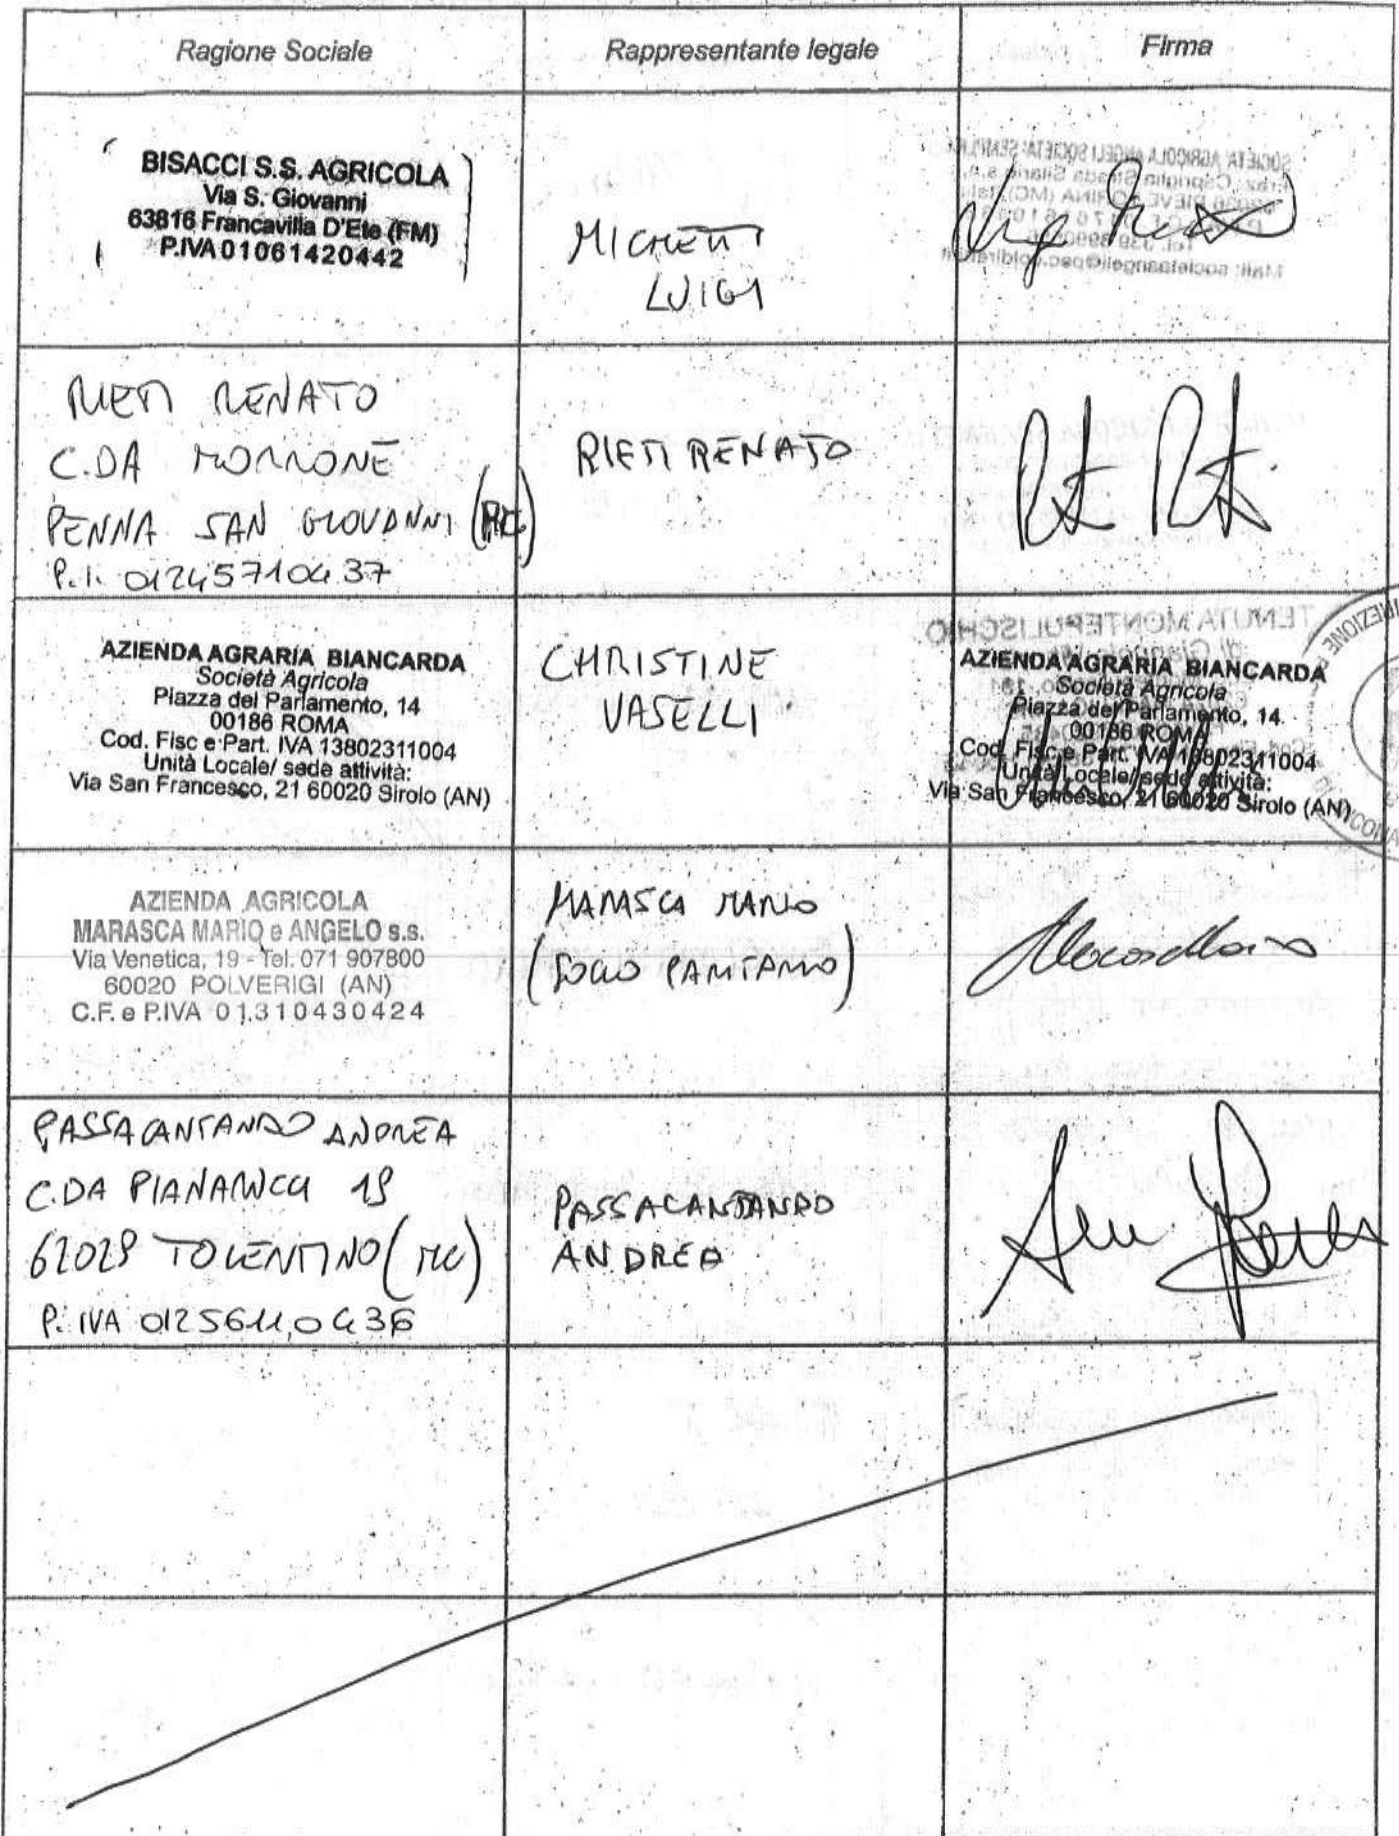 Ragione Sociale
Rappresentante legale
Firma
BISACCI S.S. AGRICOLA
Via S. Giovanni
63816 Francavilla D'Ete (FM)
P.IVA 01061420442
MICHETTI
LUIGI
RIETI RENATO
C.DA MORRONE
PENNA SAN GIOVANNI (MC)
P.I. 01245710437
RIETI RENATO
AZIENDA AGRARIA BIANCARDA
Società Agricola
Piazza del Parlamento, 14
00186 ROMA
Cod. Fisc e Part. IVA 13802311004
Unità Locale/ sede attività:
Via San Francesco, 21 60020 Sirolo (AN)
CHRISTINE
VASELLI
AZIENDA AGRARIA BIANCARDA
Società Agricola
Piazza del Parlamento, 14
00186 ROMA
Cod. Fisc e Part. IVA 13802311004
Unità Locale/ sede attività:
Via San Francesco, 21 60020 Sirolo (AN)
AZIENDA AGRICOLA
MARASCA MARIO e ANGELO s.s.
Via Venetica, 19 - Tel. 071 907800
60020 POLVERIGI (AN)
C.F. e P.IVA 01310430424
MARASCA MARIO
(SOCIO PARITARIO)
PASSACANTANDO ANDREA
C.DA PIANARUCCI 19
62029 TOLENTINO (MC)
P. IVA 01256110436
PASSACANTANDO
ANDREA